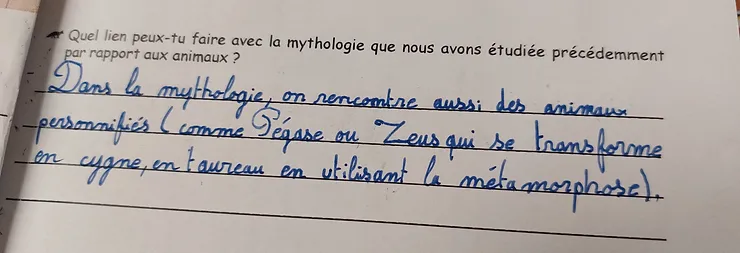 Quel lien peux-tu faire avec la mythologie que nous avons étudiée précédemment
par rapport aux animaux ?
Dans la mythologie, on rencontre aussi des animaux
personnifiés (comme Pégase ou Zeus qui se transforme
en cygne, en taureau en utilisant la métamorphose).